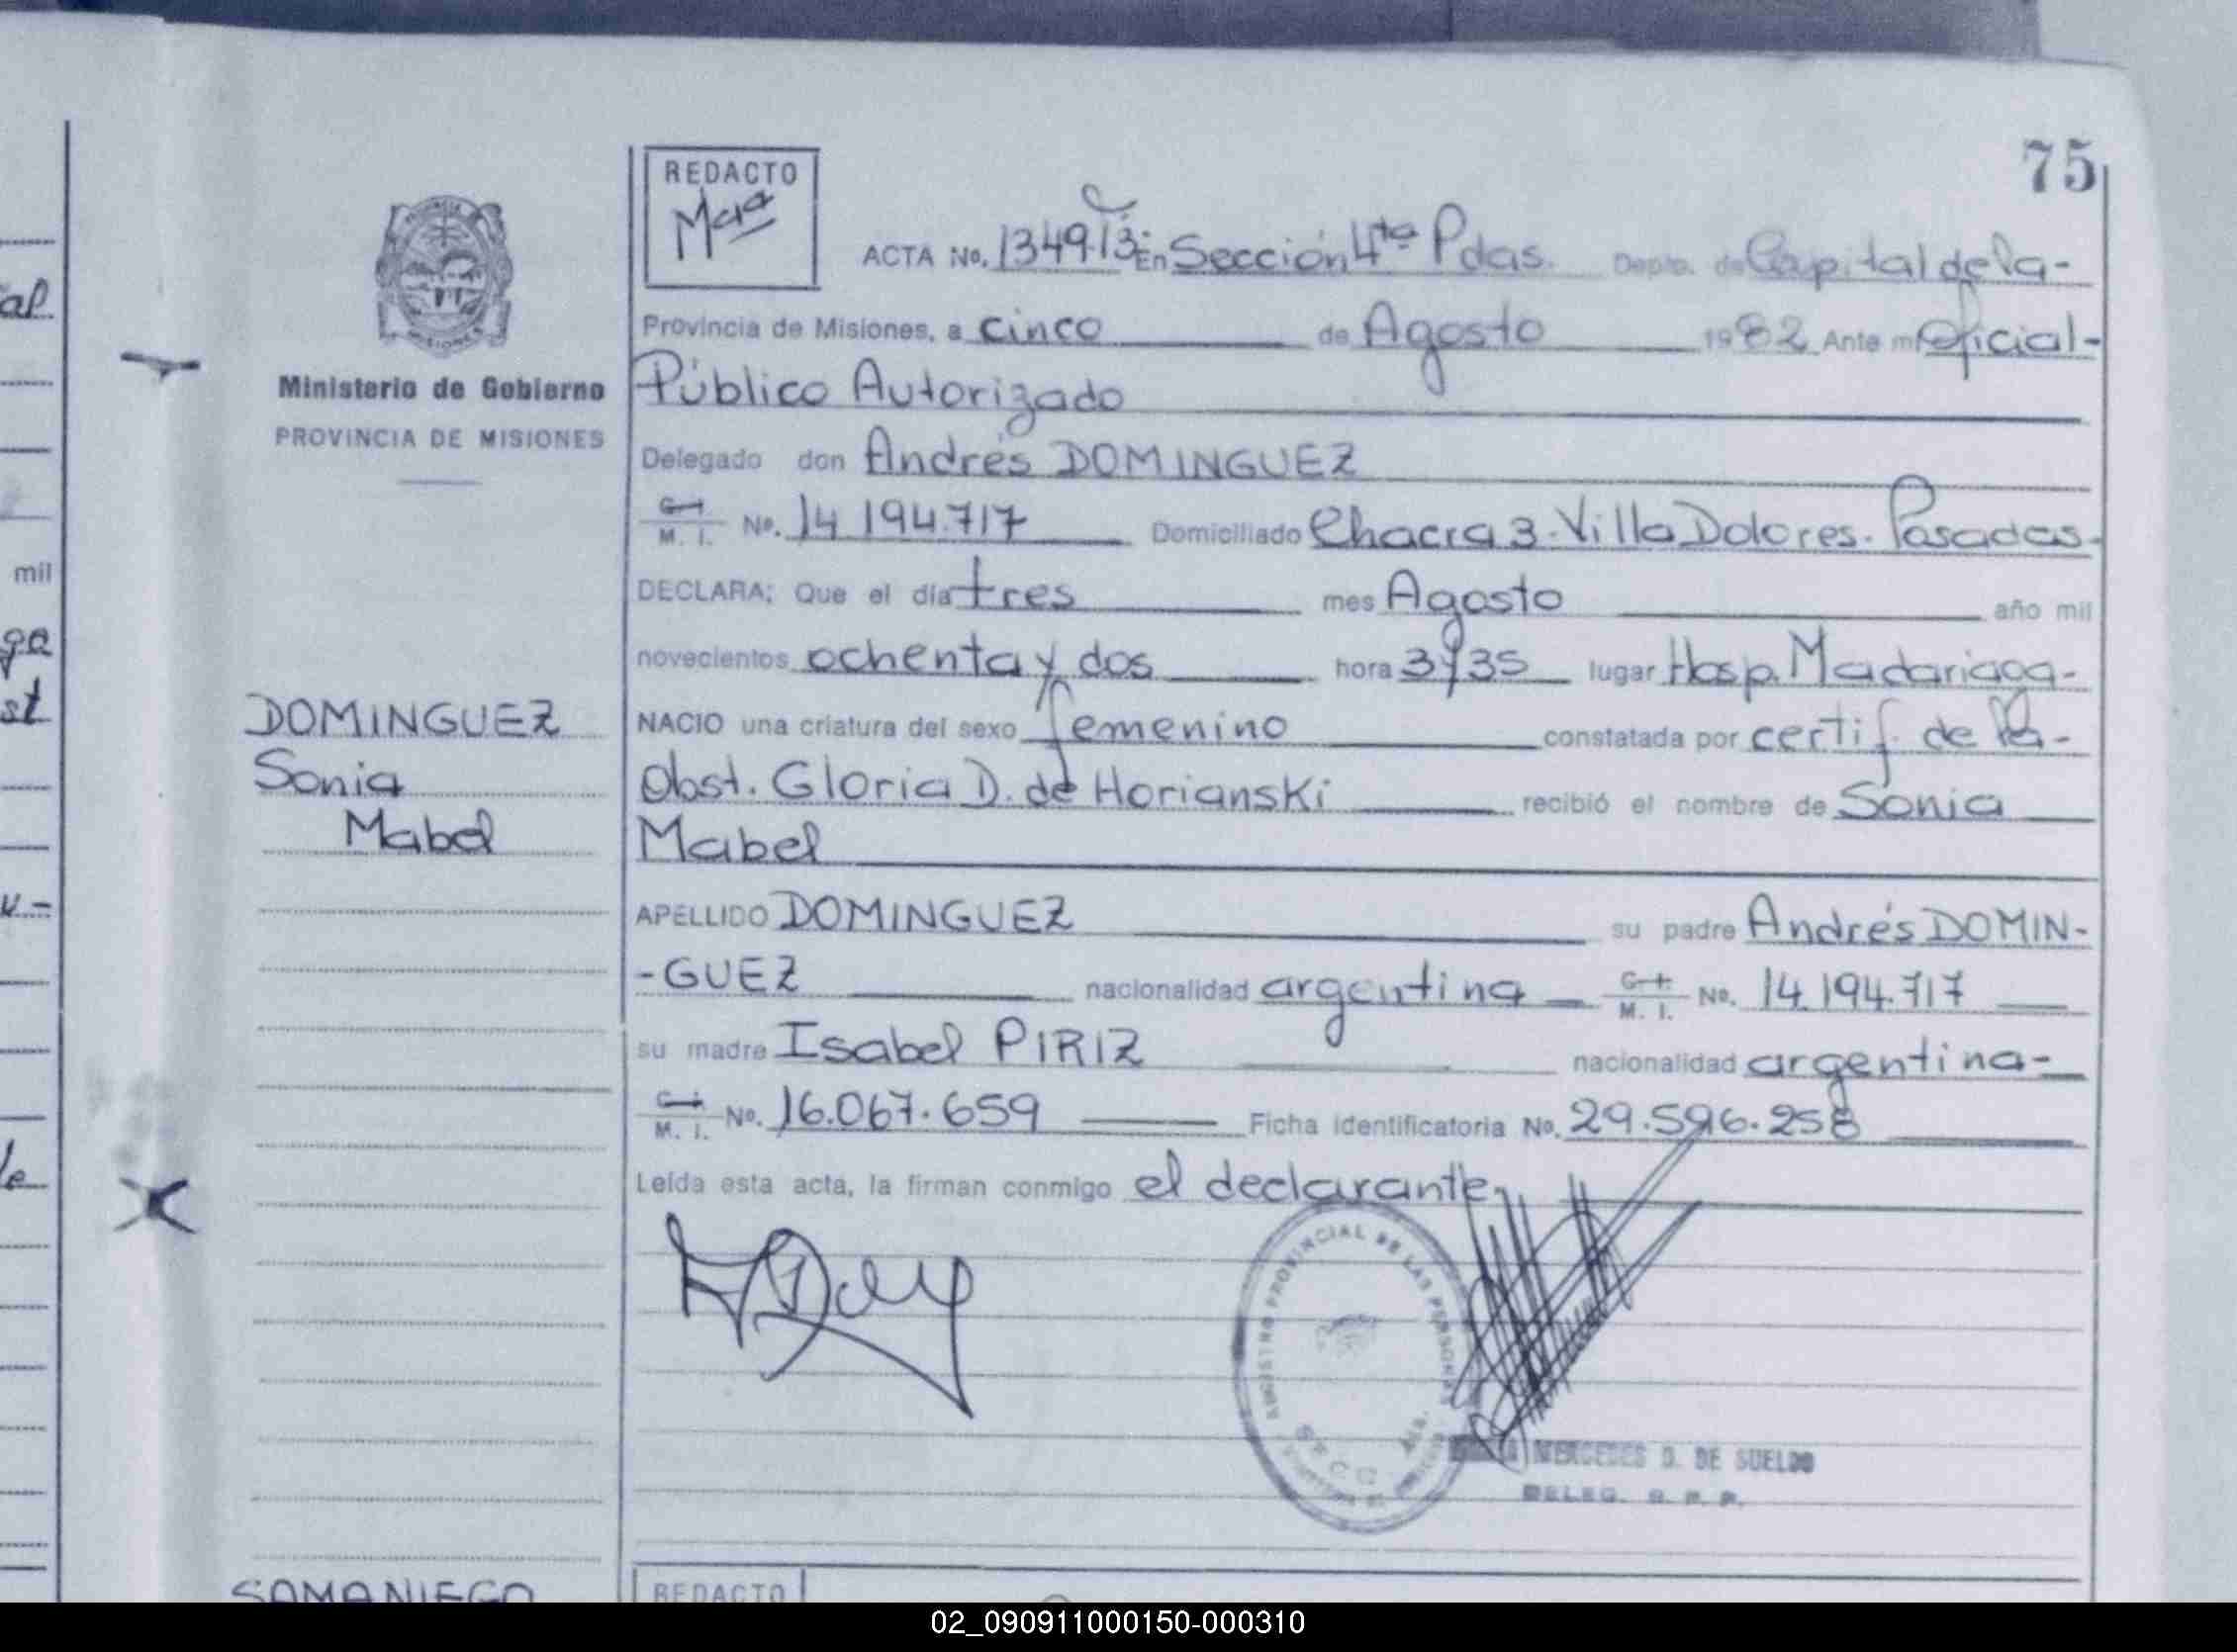 75
REDACTO
Mcia
ACTA No. 1349 T3 En Sección 4ta Pdas. Depto. de Capital de la-
Provincia de Misiones, a cinco de Agosto 1982 Ante mi Oficial-
Público Autorizado
Delegado don Andrés DOMINGUEZ
M. I. No. 14.194.717 Domiciliado Chacra 3-Villa Dolores. Posadas-
DECLARA: Que el día tres mes Agosto año mil
novecientos ochenta y dos hora 3y35 lugar Hosp. Madariaga-
NACIO una criatura del sexo femenino constatada por certif. de la-
Obst. Gloria D. de Horianski recibió el nombre de Sonia
Mabel
APELLIDO DOMINGUEZ su padre Andrés DOMIN-
-GUEZ nacionalidad argentina C. I. M. I. No. 14.194.717
su madre Isabel PIRIZ nacionalidad argentina-
C. I. M. I. No. 16.067.659 Ficha identificatoria No. 29.596.258
Leída esta acta, la firman conmigo el declarante,
REGISTRO PROVINCIAL DE LAS PERSONAS
MERCEDES D. DE SUELDO
DELEG. R. P. P.
PROVINCIA
MISIONES
Ministerio de Gobierno
PROVINCIA DE MISIONES
DOMINGUEZ
Sonia
Mabel
SAMANIEGO
REDACTO
al
mil
ga
st
u-
le
02_090911000150-000310